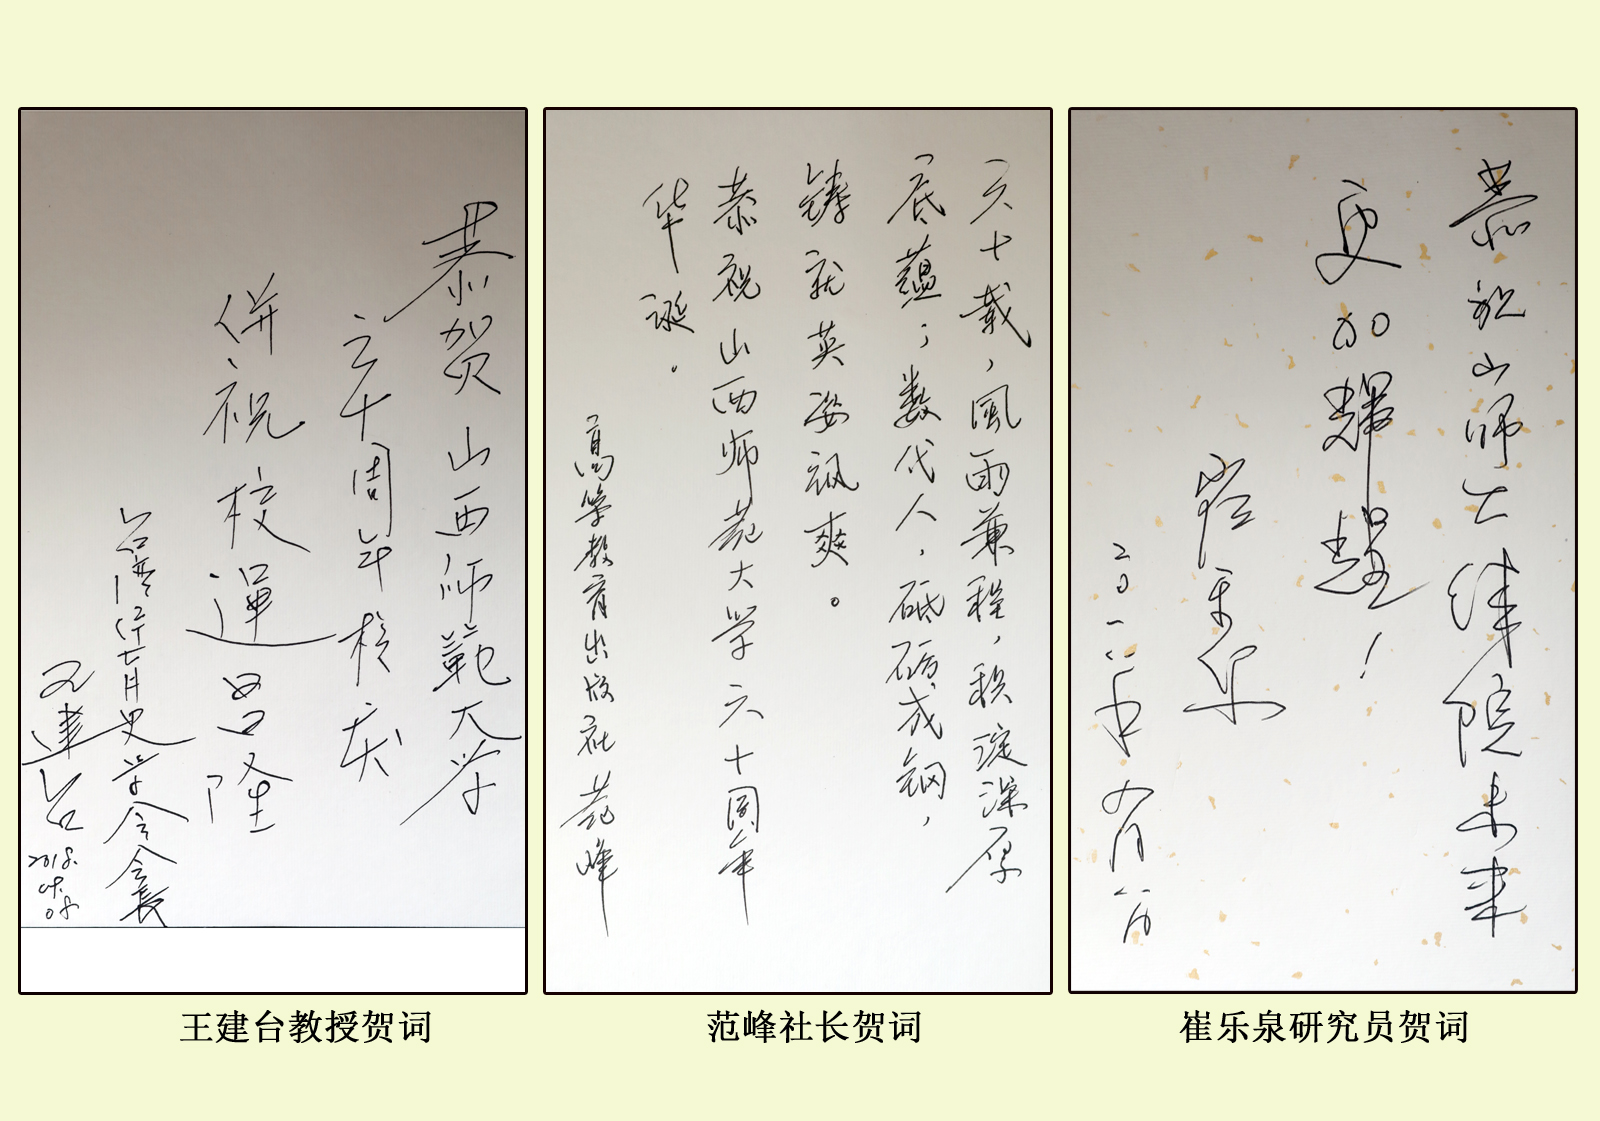 恭贺山西师範大学
六十周年校庆
併祝校運昌隆
台湾体育史学会会長
王建台
2018.
09.
08
王建台教授贺词
六十载，風雨兼程，积淀深厚
底蕴；数代人，砥砺成钢，
铸就英姿飒爽。
恭祝山西师范大学六十周年
华诞.
高等教育出版社范峰
范峰社长贺词
恭祝山师大体院未来
更加輝煌！
崔乐泉
二〇一八年九月八日
崔乐泉研究员贺词